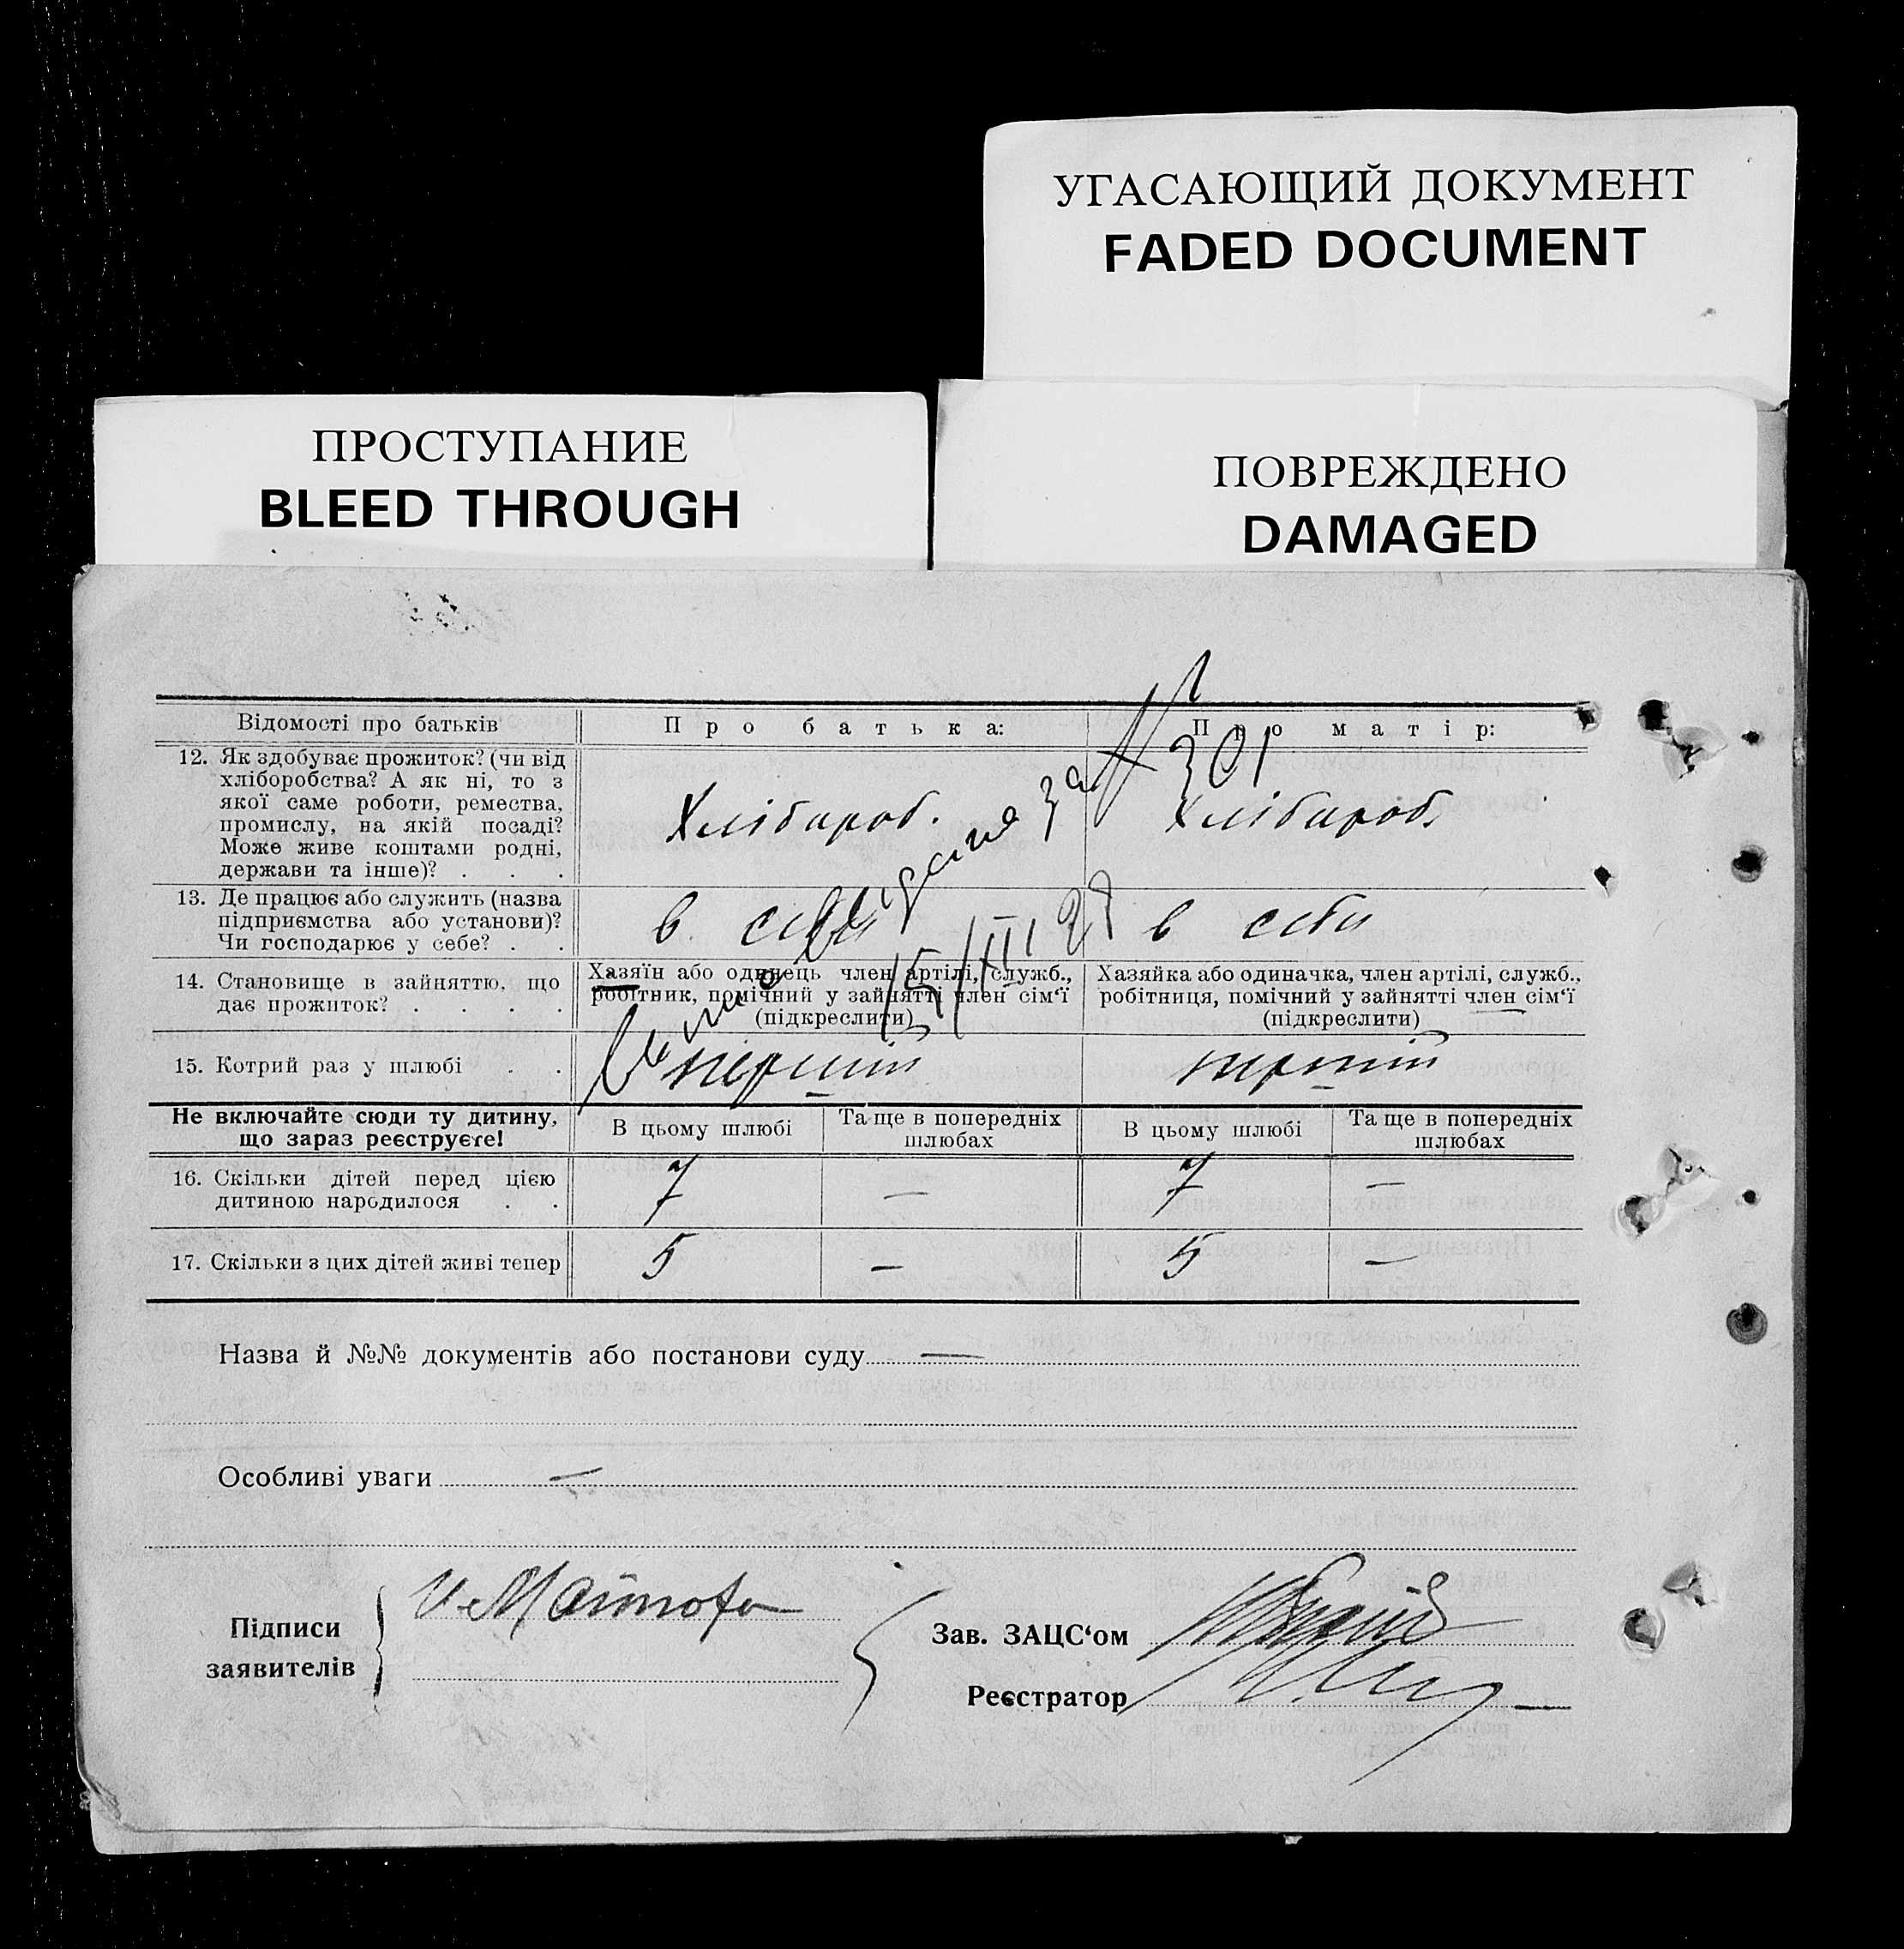 УГАСАЮЩИЙ ДОКУМЕНТ
FADED DOCUMENT
ПРОСТУПАНИЕ
BLEED THROUGH
ПОВРЕЖДЕНО
DAMAGED
Відомості про батьків
Про батька:
Про матір:
12. Як здобуває прожиток? (чи від
хліборобства? А як ні, то з
якої саме роботи, ремества,
промислу, на якій посаді?
Може живе коштами родні,
держави та інше)? . . .
Хлібароб.
Хлібароб.
видана за № 301
15/III 28
13. Де працює або служить (назва
підприємства або установи)?
Чи господарює у себе? . .
в себи
в себи
14. Становище в зайняттю, що
дає прожиток? . . . .
Хазяїн або одинець член артілі, служб.,
робітник, помічний у зайнятті член сім‘ї
(підкреслити)
Хазяйка або одиначка, член артілі, служб.,
робітниця, помічний у зайнятті член сім‘ї
(підкреслити)
15. Котрий раз у шлюбі . .
перший
перший
Не включайте сюди ту дитину,
що зараз реєструєте!
В цьому шлюбі
Та ще в попередніх
шлюбах
В цьому шлюбі
Та ще в попередніх
шлюбах
16. Скільки дітей перед цією
дитиною народилося . .
7
—
7
—
17. Скільки з цих дітей живі тепер
5
—
5
—
Назва й №№ документів або постанови суду —
Особливі уваги —
Підписи
заявителів
Зав. ЗАЦС‘ом
Реєстратор